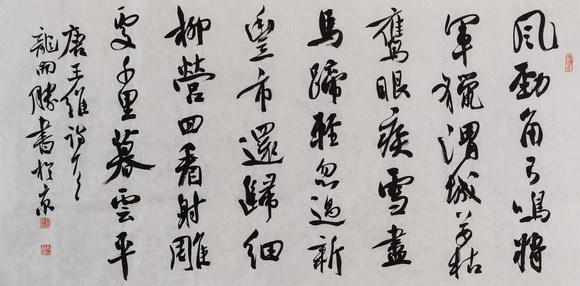 風勁角弓鳴將
軍獵渭城草枯
鷹眼疾雪盡
馬蹄輕忽過新
豐市還歸細
柳營回看射雕
處千里暮雲平
唐王維詩
龍雨勝書於京